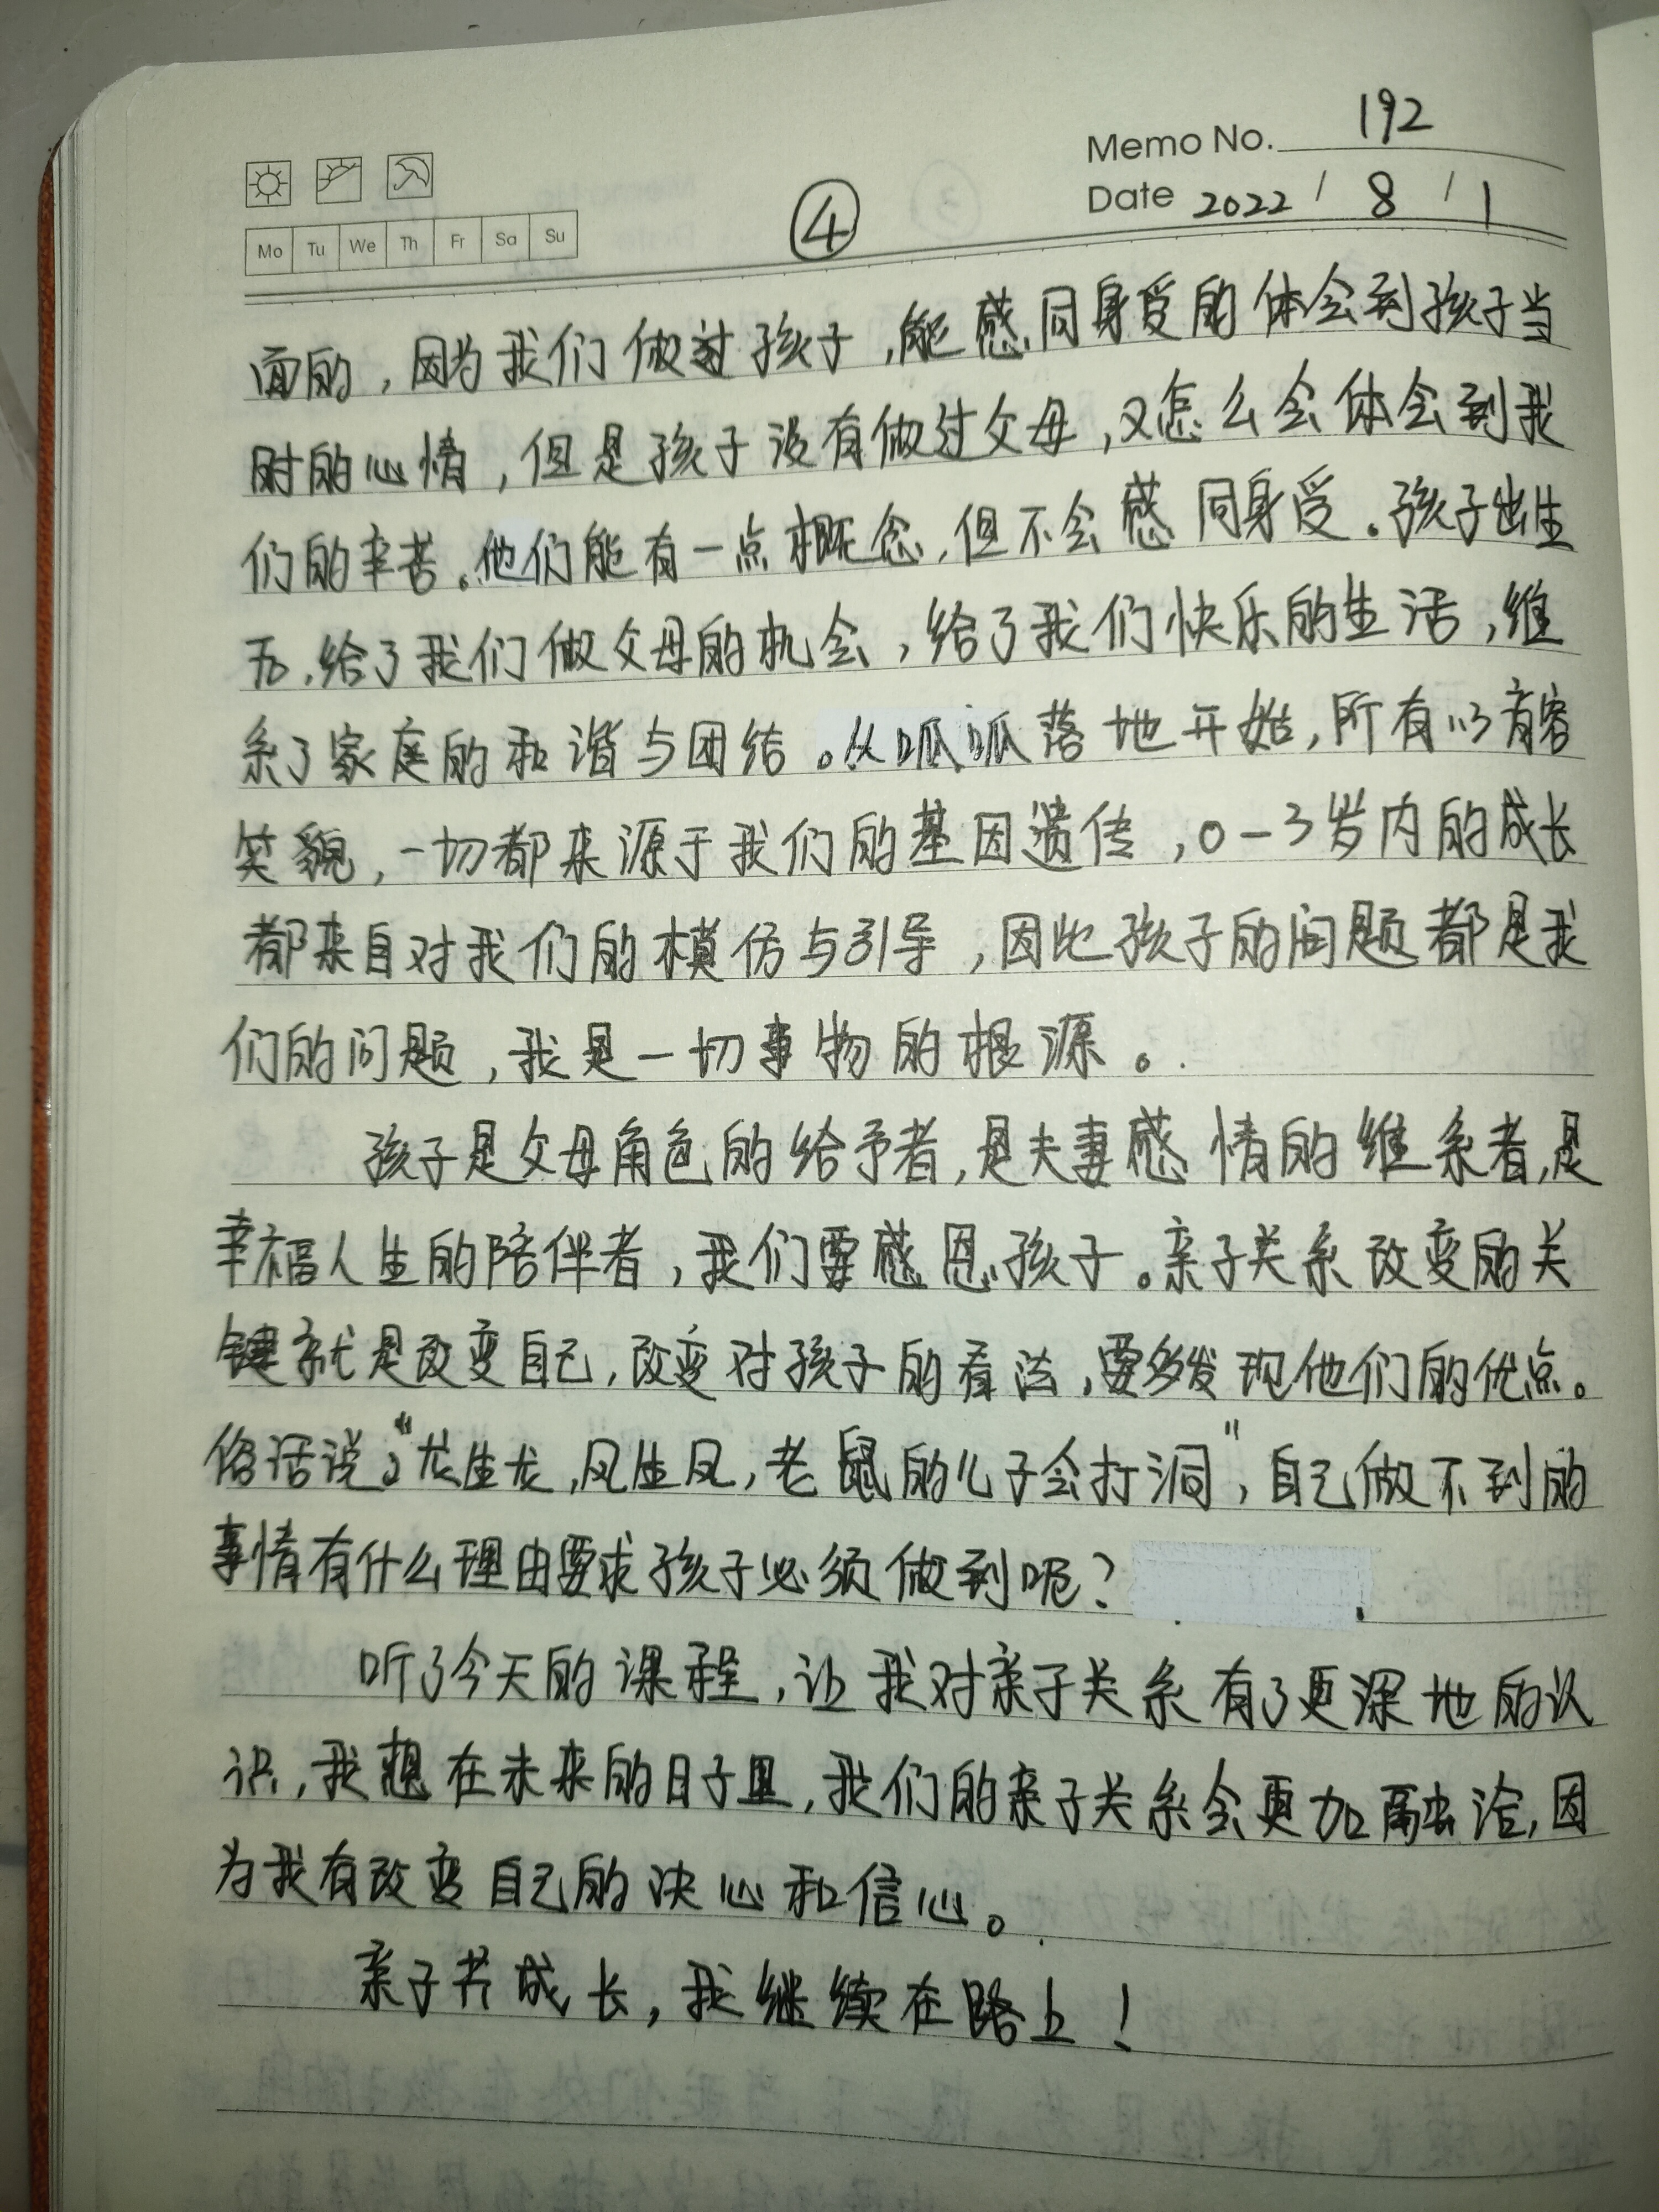 Memo No. 192
Mo Tu We Th Fr Sa Su
④
Date 2022 / 8 / 1
面的，因为我们做过孩子，能感同身受的体会到孩子当
时的心情，但是孩子没有做过父母，又怎么会体会到我
们的辛苦。他们能有一点概念，但不会感同身受。孩子出生
后，给了我们做父母的机会，给了我们快乐的生活，维
系了家庭的和谐与团结。从呱呱落地开始，所有的音容
笑貌，一切都来源于我们的基因遗传，0－3岁内的成长
都来自对我们的模仿与引导，因此孩子的问题都是我
们的问题，我是一切事物的根源。
孩子是父母角色的给予者，是夫妻感情的维系者，是
幸福人生的陪伴者，我们要感恩孩子。亲子关系改变的关
键就是改变自己，改变对孩子的看法，要多发现他们的优点。
俗话说：“龙生龙，凤生凤，老鼠的儿子会打洞”，自己做不到的
事情有什么理由要求孩子必须做到呢？
听了今天的课程，让我对亲子关系有了更深地的认
识，我想在未来的日子里，我们的亲子关系会更加融洽，因
为我有改变自己的决心和信心。
亲子共成长，我继续在路上！